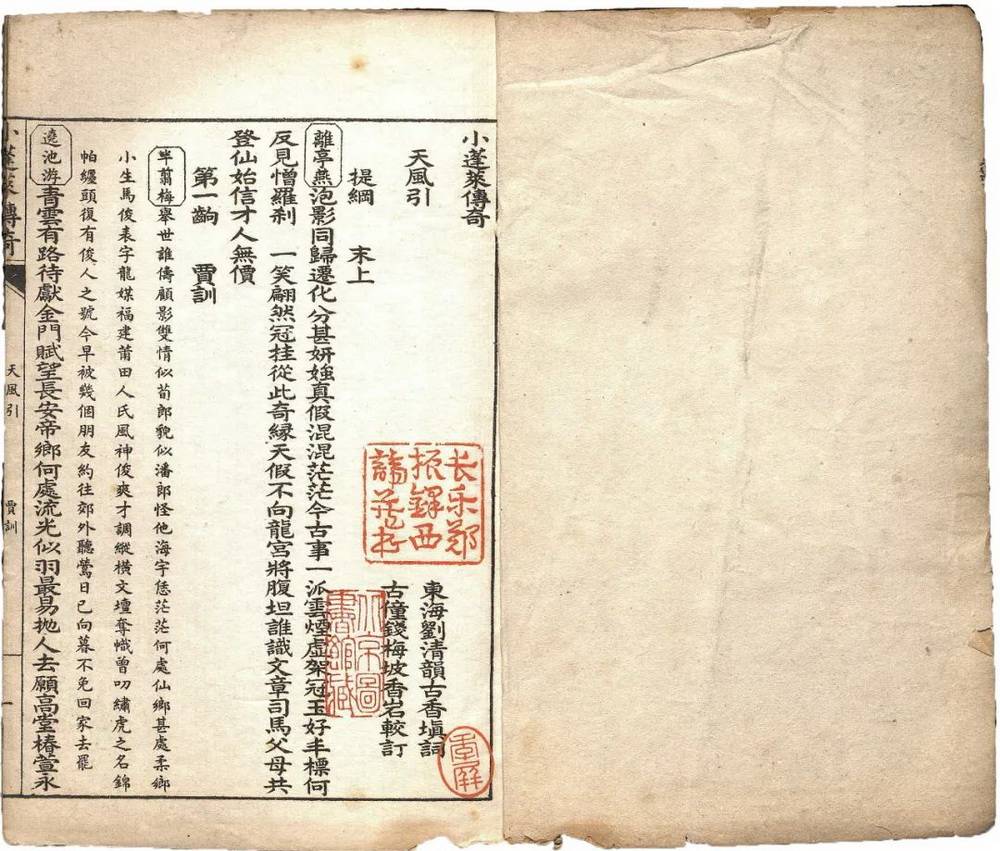 小蓬萊傳奇
天風引
東海劉清韻古香塡詞
古僮錢梅坡香岩較訂
提綱 末上
離亭燕 泡影同歸遷化分甚妍媸真假混混茫茫今古事一派雲煙虛架冠玉好丰標何
反見憎羅刹 一笑翩然冠挂從此奇緣天假不向龍宮將腹坦誰識文章司馬父母共
登仙始信才人無價
第一齣 賈訓
半翦梅 舉世誰儔顧影雙情似荀郎貌似潘郎怪他海宇恁茫茫何處仙鄉甚處柔鄉
小生馬俊表字龍媒福建莆田人氏風神俊爽才調縱橫文壇奪幟曾叨繡虎之名錦
帕纏頭復有俊人之號今早被幾個朋友約往郊外聽鶯日已向暮不免回家去罷
遶池游 青雲有路待獻金門賦望長安帝鄉何處流光似羽最易抛人去願高堂椿萱永
小蓬萊傳奇 天風引 賈訓 一
长乐郑
振铎西
諦藏书
北京圖
書館藏